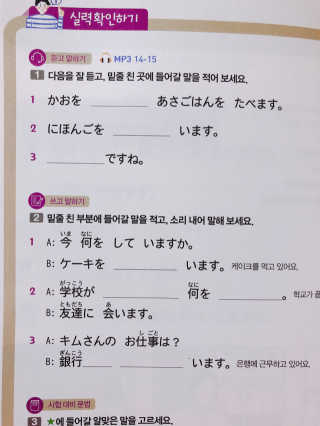 실력확인하기
듣고 말하기 MP3 14-15
1 다음을 잘 듣고, 밑줄 친 곳에 들어갈 말을 적어 보세요.
1 かおを ________ あさごはんを たべます。
2 にほんごを ________ います。
3 ________ ですね。
쓰고 말하기
2 밑줄 친 부분에 들어갈 말을 적고, 소리 내어 말해 보세요.
いま なに
1 A: 今 何を して いますか。
B: ケーキを ________ います。 케이크를 먹고 있어요.
がっこう なに
2 A: 学校が ________ 何を ________ 。 학교가
ともだち あ
B: 友達に 会います。
し ごと
3 A: キムさんの お仕事は?
ぎんこう
B: 銀行________ います。 은행에 근무하고 있어요.
시험 대비 문법
3 ★에 들어갈 알맞은 말을 고르세요.